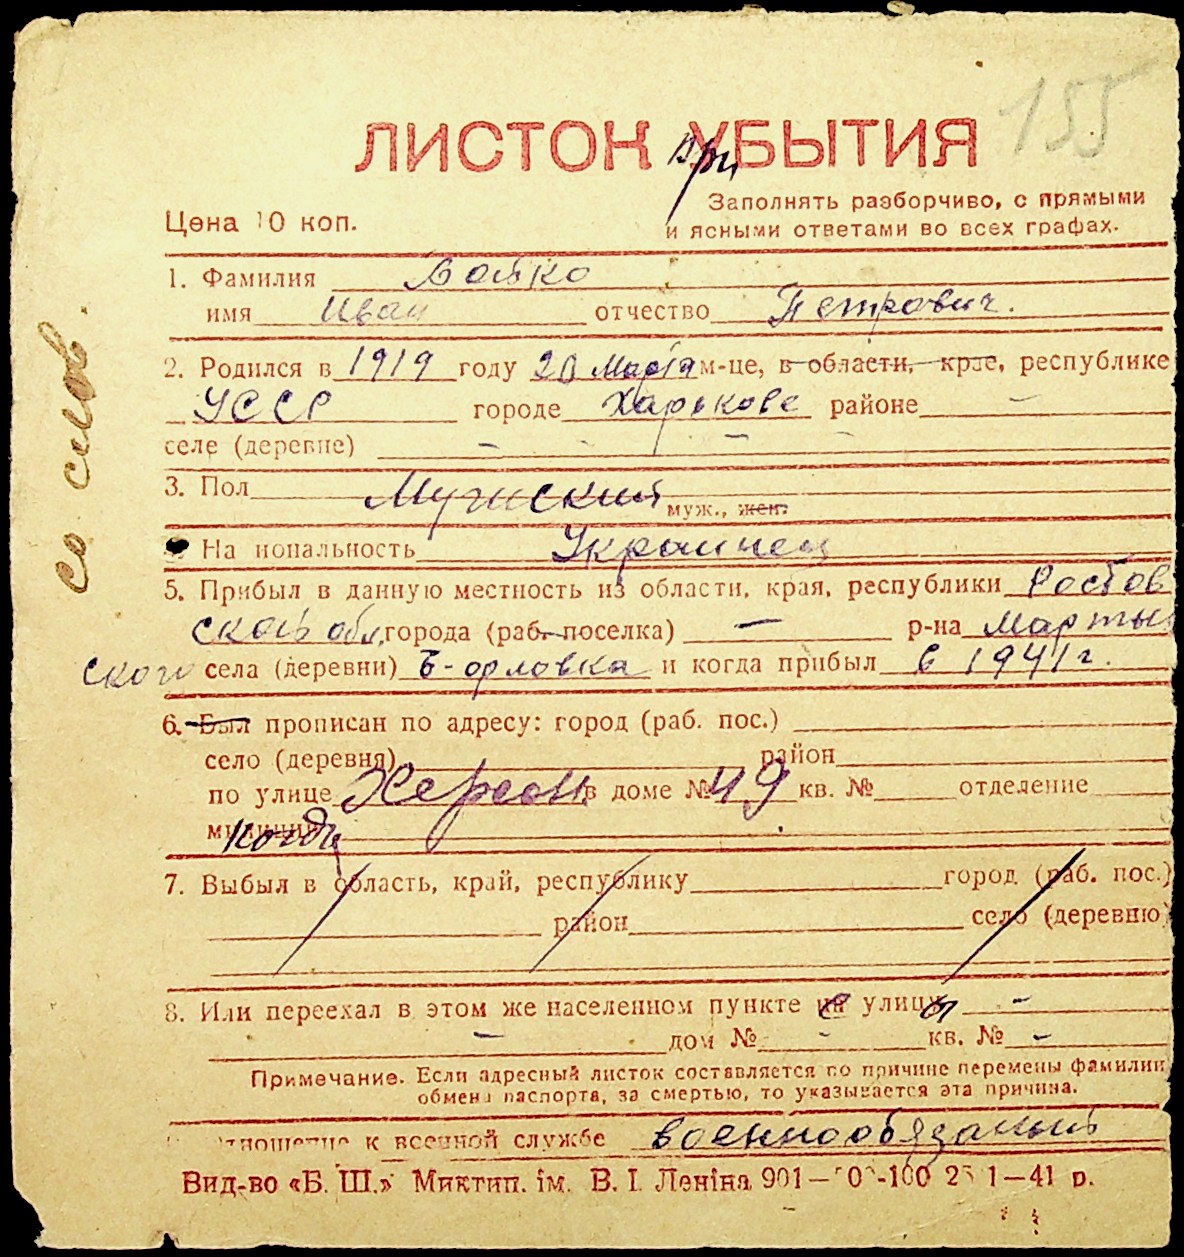 155
ЛИСТОК УБЫТИЯ
При
Цена 10 коп.
Заполнять разборчиво, с прямыми
и ясными ответами во всех графах.
1. Фамилия Бойко
имя Иван отчество Петрович.
2. Родился в 1919 году 20 Марта м-це, в области, крае, республике
УССР городе Харькове районе -
селе (деревне) - - - -
3. Пол Мужский муж., жен.
На иональность Украинец
5. Прибыл в данную местность из области, края, республики Ростов
ской обл. города (раб. поселка) — р-на Марты
ского села (деревни) Б-орловка и когда прибыл в 1941 г.
6. Был прописан по адресу: город (раб. пос.)
село (деревня) район
по улице Херсон в доме № 49 кв. № отделение
милиции Когда
7. Выбыл в область, край, республику город (раб. пос.)
район село (деревню)
8. Или переехал в этом же населенном пункте на с улицы -
- дом № - кв. № -
Примечание. Если адресный листок составляется по причине перемены фамилии
обмена паспорта, за смертью, то указывается эта причина.
тношение к военной службе военнообязанный
Вид-во «Б. Ш.» Миктип. ім. В. І. Леніна 901— 1—41 р.
со слов.